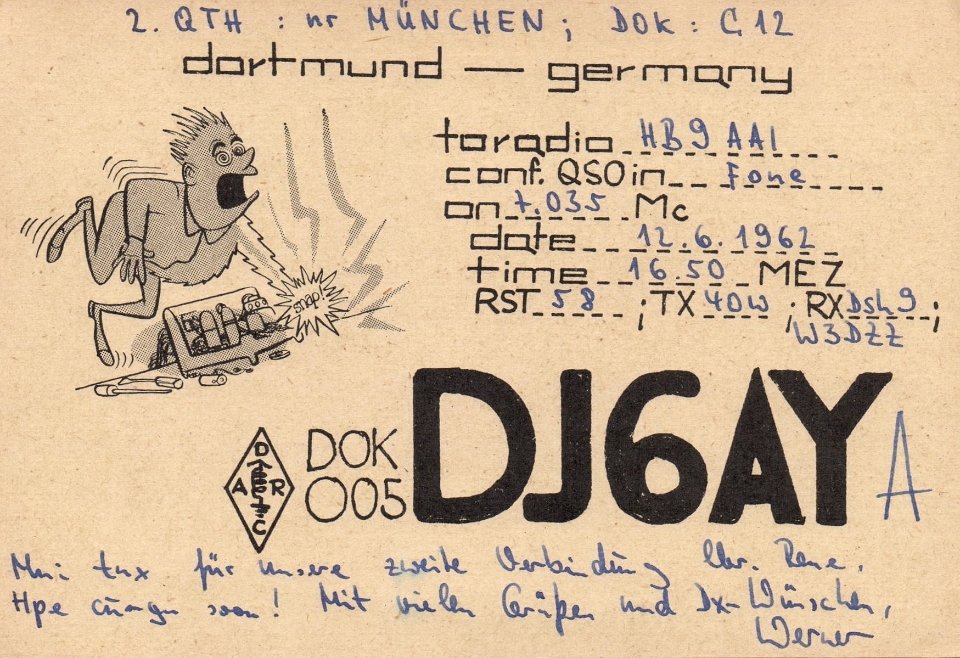 2. QTH : nr MÜNCHEN ; DOK : C12
dortmund — germany
to radio HB9AAI
conf. QSO in Fone
on 7.035 Mc
date 12.6.1962
time 16.50 MEZ
RST 58 ; TX 40W ; RX Dsh9 ;
W3DZZ
snap!
DJ6AY A
DOK
OO5
D
A R
C
Mni tnx für unsere zweite Verbindung lbr. Rene.
Hpe cuagn soon! Mit vielen Grüßen und Dx-Wünschen,
Werner